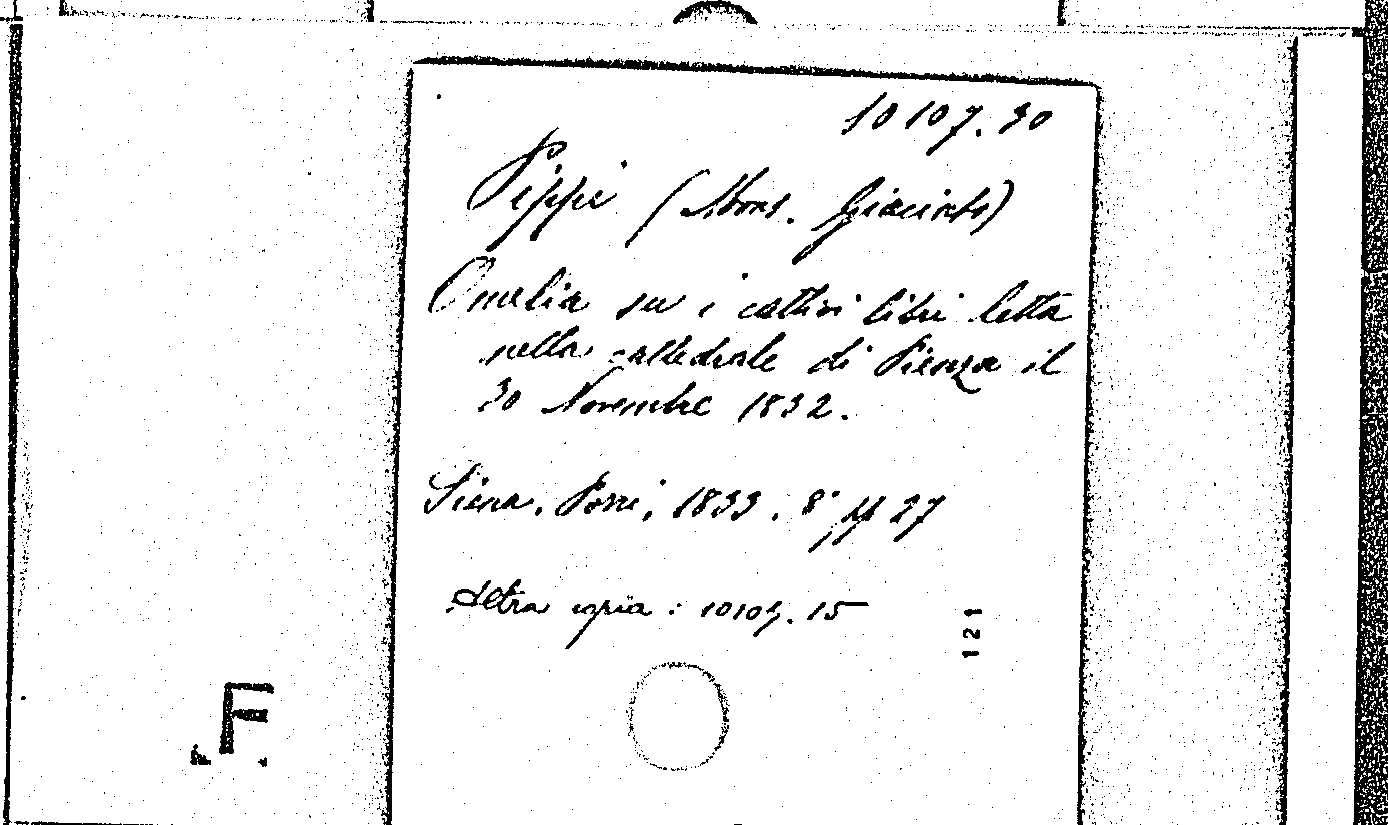 10107.30
Pippi (Mons. Giacinto)
Omelia su i cattivi libri letta
nella cattedrale di Pienza il
30 Novembre 1832.
Siena, Porri, 1833. 8° pp 27
Altra copia: 10109.15
121
F